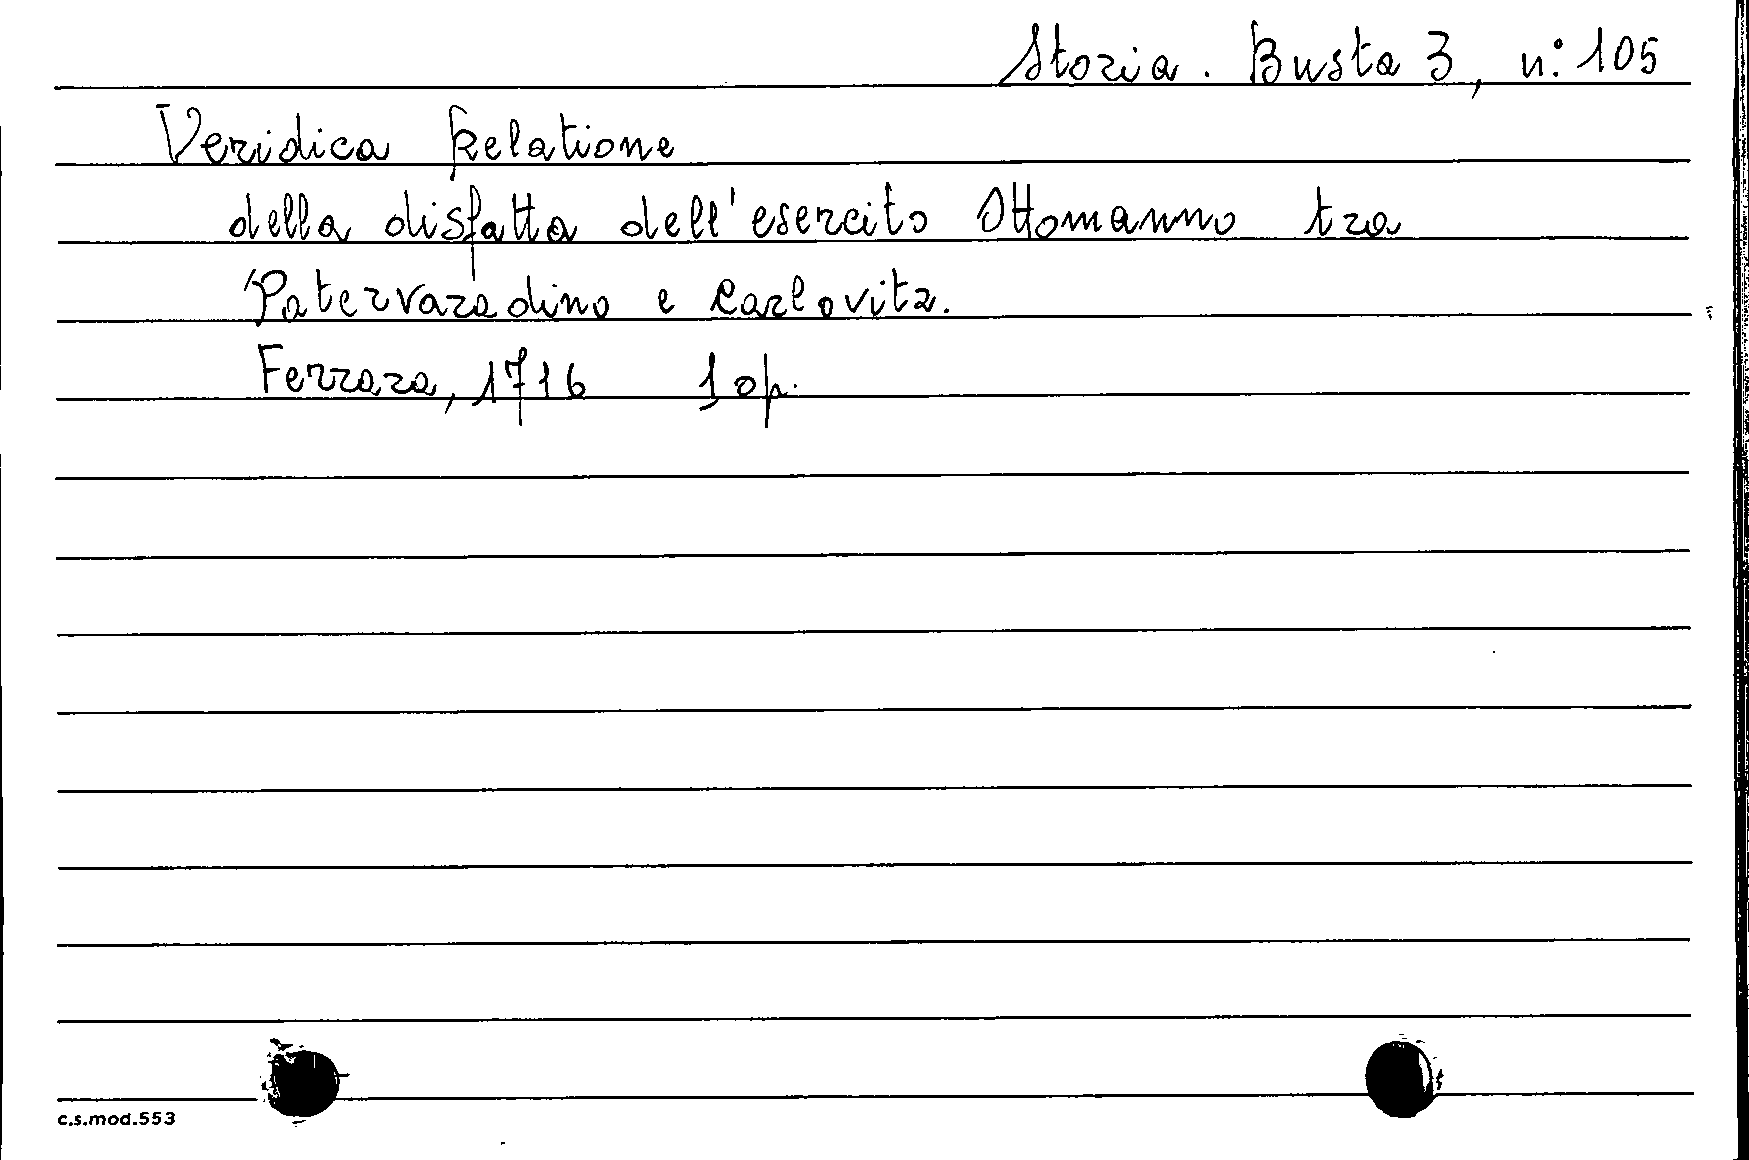 Storia. Busta 3, n: 105
Veridica Relatione
della disfatta dell'esercito Ottomanno tra
Patervaradino e Carlovitz.
Ferrara, 1716 1 op.
c.s.mod.553